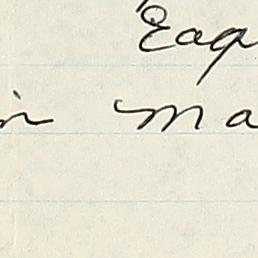 Eag
in Ma